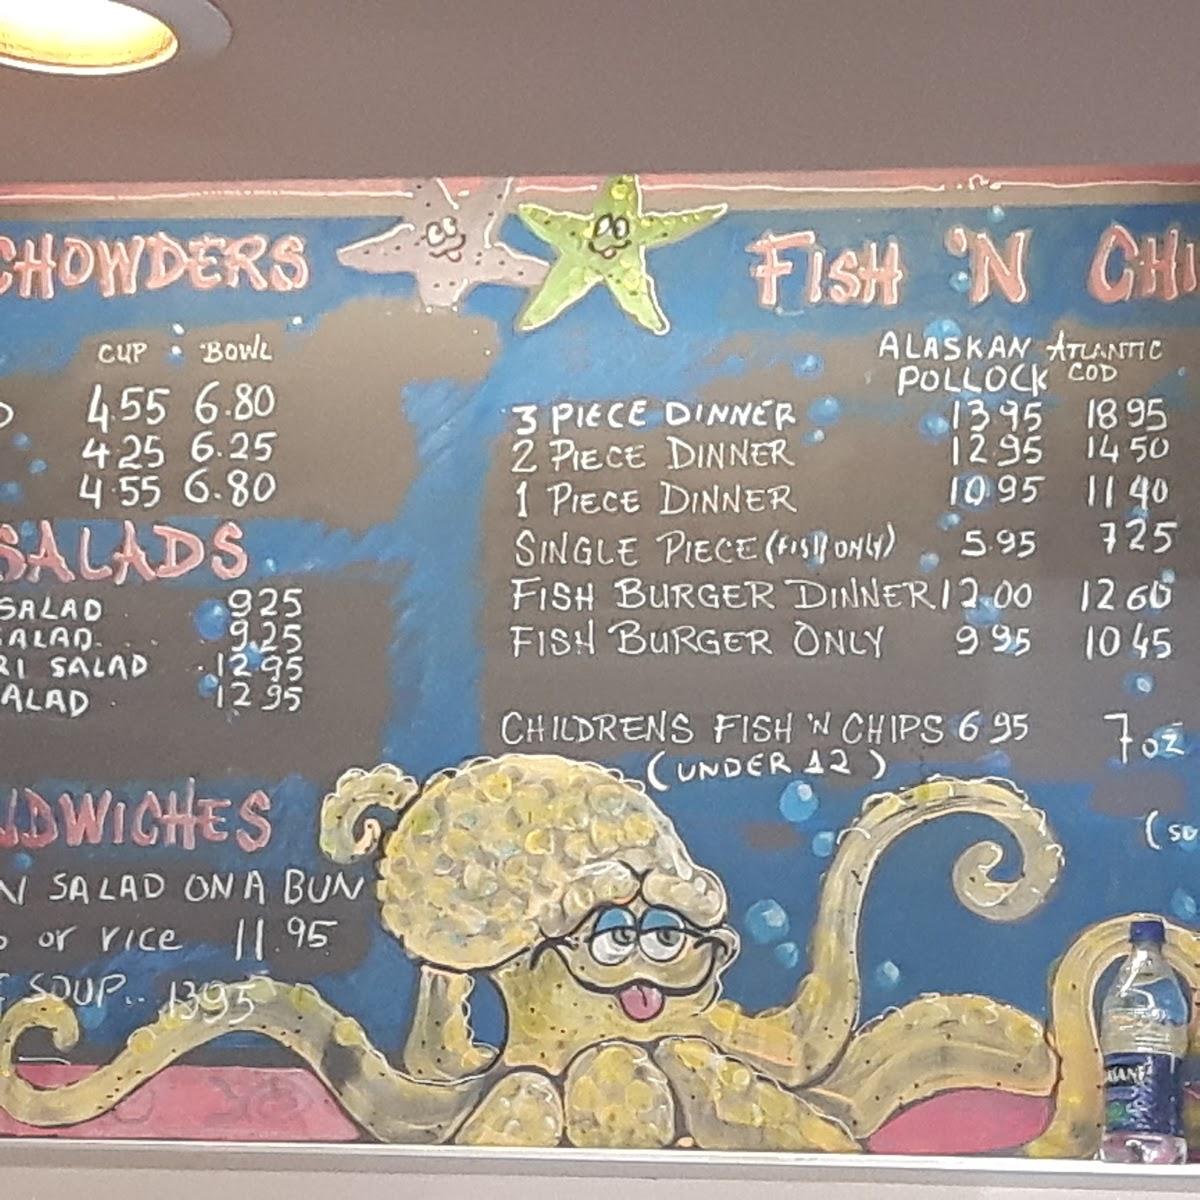 CHOWDERS
CUP BOWL
4.55 6.80
4.25 6.25
4.55 6.80
SALADS
SALAD 925
SALAD 9.25
RI SALAD 12.95
SALAD 12 95
NDWICHES
N SALAD ON A BUN
or rice 11.95
SOUP.. 1395
FISH 'N CHI
ALASKAN ATLANTIC
POLLOCK COD
3 PIECE DINNER 13 95 18 95
2 PIECE DINNER 12.95 14 50
1 PIECE DINNER 10 95 11 40
SINGLE PIECE (FISH ONLY) 5.95 725
FISH BURGER DINNER 12.00 12 60
FISH BURGER ONLY 9 95 10 45
CHILDRENS FISH 'N CHIPS 6 95 7 oz
(UNDER 12)